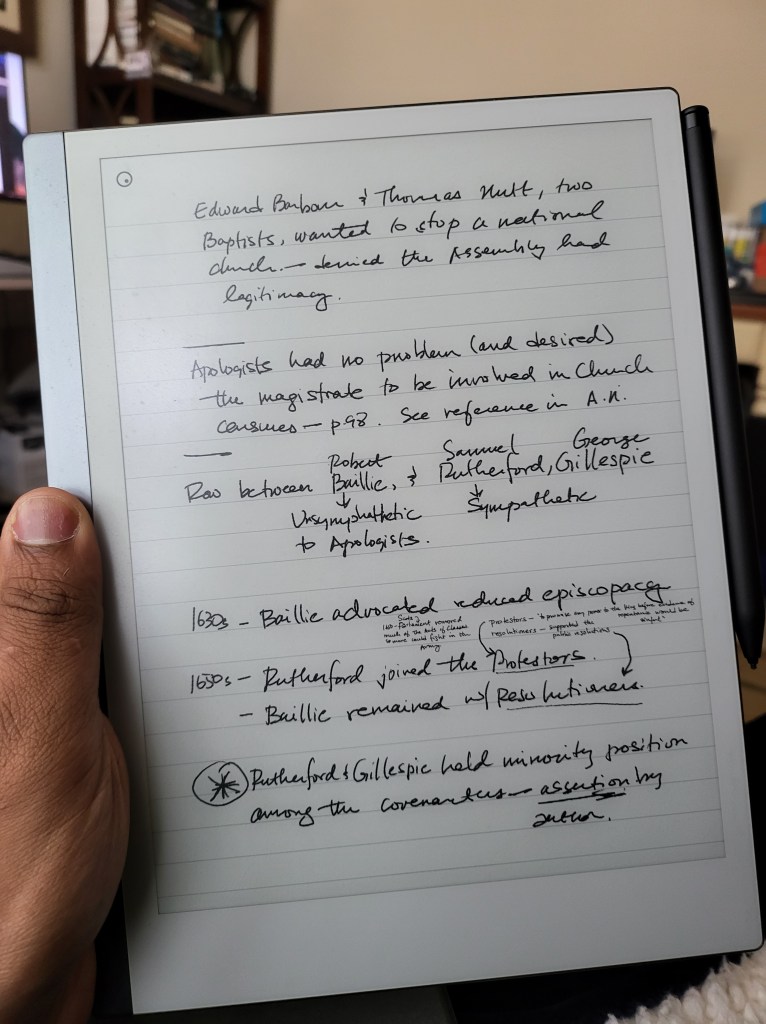 Edward Barbour & Thomas Nutt, two
Baptists, wanted to stop a national
church. — denied the Assembly had
legitimacy.
Apologists had no problem (and desired)
the magistrate to be involved in Church
censures — p.98. See reference in A.N.
Robert Samuel George
Row between Baillie, & Rutherford, Gillespie
Unsymphathetic Sympathetic
to Apologists.
1630s — Baillie advocated reduced episcopacy
Parliament removed
much of the Acts of Classes
so more could fight in the
Army
Protestors — "to promise any power to the king before evidence of
repentance would be
sinful"
resolutioners — supported the
public resolutions
1650s — Rutherford joined the Protestors.
— Baillie remained w/ Resolutioners.
Rutherford & Gillespie held minority position
among the covenanters — assertion by
author.